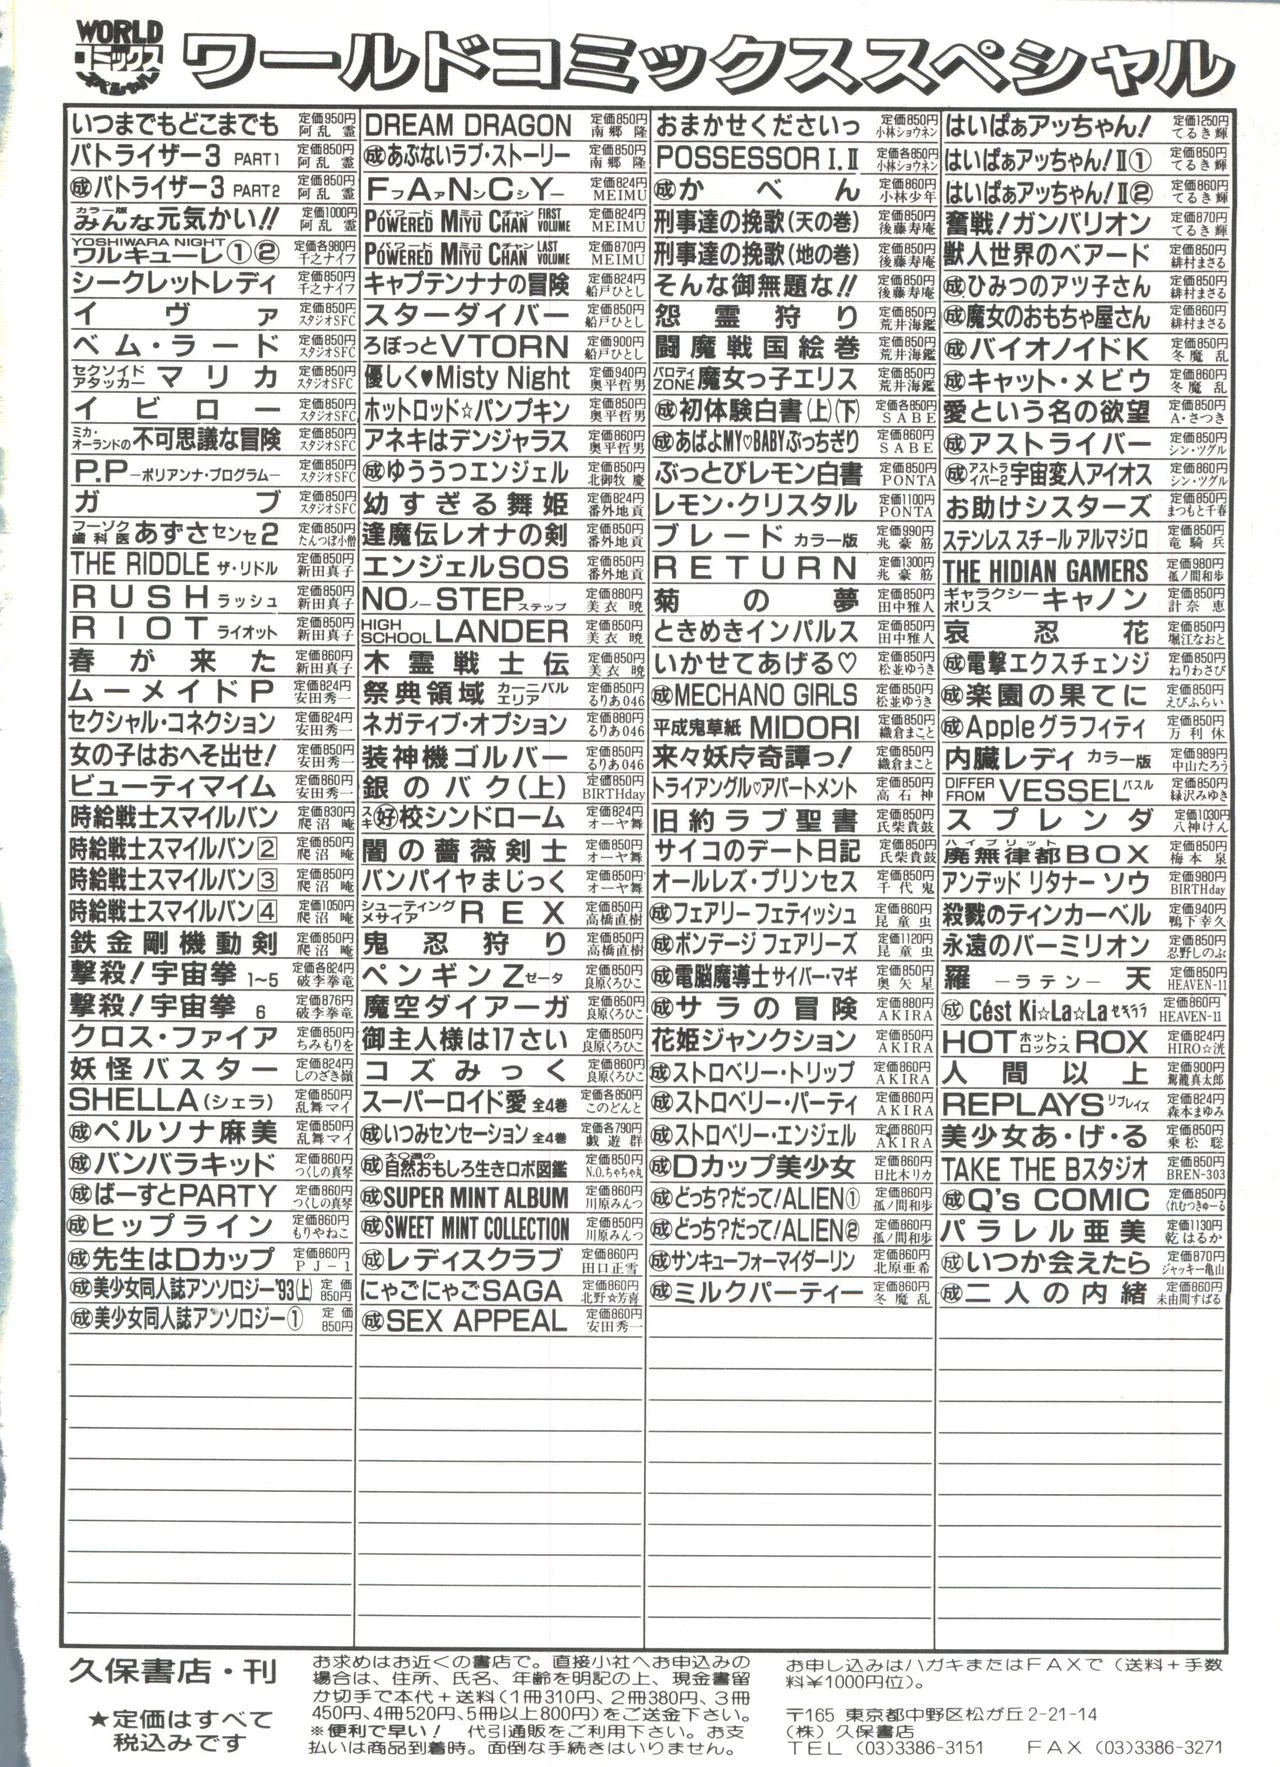 WORLD
コミックス
スペシャル
ワールドコミックススペシャル
いつまでもどこまでも 定価950円 阿乱 霊
パトライザー3 PART1 定価850円 阿乱 霊
㊎パトライザー3 PART2 定価850円 阿乱 霊
カラー版 みんな元気かい!! 定価1000円 阿乱 霊
YOSHIWARA NIGHT ワルキューレ①② 定価各980円 千之ナイフ
シークレットレディ 定価850円 千之ナイフ
イヴァ 定価850円 スタジオSFC
ベム・ラード 定価850円 スタジオSFC
セクソイドアタッカー マリカ 定価850円 スタジオSFC
イビロー 定価850円 スタジオSFC
ミカ・オーランドの不可思議な冒険 定価850円 スタジオSFC
P.P ─ポリアンナ・プログラム─ 定価850円 スタジオSFC
ガブ 定価850円 スタジオSFC
フーゾク歯科医 あずさセンセ2 定価850円 たんつぼ小僧
THE RIDDLE ザ・リドル 定価850円 新田真子
RUSH ラッシュ 定価850円 新田真子
RIOT ライオット 定価850円 新田真子
春が来た 定価860円 新田真子
ムーメイドP 定価824円 安田秀一
セクシャル・コネクション 定価824円 安田秀一
女の子はおへそ出せ! 定価850円 安田秀一
ビューティマイム 定価860円 安田秀一
時給戦士スマイルバン 定価830円 爬沼 唵
時給戦士スマイルバン2 定価850円 爬沼 唵
時給戦士スマイルバン3 定価850円 爬沼 唵
時給戦士スマイルバン4 定価1050円 爬沼 唵
鉄金剛機動剣 定価850円 爬沼 唵
撃殺!宇宙拳 1~5 定価各824円 破李拳竜
撃殺!宇宙拳 6 定価876円 破李拳竜
クロス・ファイア 定価850円 ちみもりを
妖怪バスター 定価824円 しのざき嶺
SHELLA(シェラ) 定価850円 乱舞マイ
成ペルソナ麻美 定価850円 乱舞マイ
成バンバラキッド 定価860円 つくしの真琴
成ばーすとPARTY 定価860円 つくしの真琴
成ヒップライン 定価860円 もりやねこ
成先生はDカップ 定価860円 PJ-1
成美少女同人誌アンソロジー'93(上) 定価850円
成美少女同人誌アンソロジー① 定価850円
DREAM DRAGON 定価850円 南郷 隆
成あぶないラブ・ストーリー 定価850円 南郷 隆
FファAンNンCシYー 定価824円 MEIMU
POWERED パワード MIYU ミユ CHAN チャン FIRST VOLUME 定価824円 MEIMU
POWERED パワード MIYU ミユ CHAN チャン LAST VOLUME 定価870円 MEIMU
キャプテンナナの冒険 定価824円 船戸ひとし
スターダイバー 定価850円 船戸ひとし
ろぼっとVTORN 定価900円 船戸ひとし
優しく♥Misty Night 定価940円 奥平哲男
ホットロッド☆パンプキン 定価850円 奥平哲男
アネキはデンジャラス 定価860円 奥平哲男
成ゆううつエンジェル 定価850円 北御牧 慶
幼すぎる舞姫 定価824円 番外地貢
逢魔伝レオナの剣 定価850円 番外地貢
エンジェルSOS 定価850円 番外地貢
NOノーSTEPステップ 定価880円 美衣 暁
HIGH SCHOOL LANDER 定価850円 美衣 暁
木霊戦士伝 定価850円 美衣 暁
祭典領域 カーニバルエリア 定価850円 るりあ046
ネガティブ・オプション 定価880円 るりあ046
装神機ゴルバー 定価850円 るりあ046
銀のバク(上) 定価850円 BIRTHday
スキ好校シンドローム 定価824円 オーヤ舞
闇の薔薇剣士 定価850円 オーヤ舞
バンパイヤまじっく 定価850円 オーヤ舞
シューティングメサイア REX 定価850円 高橋直樹
鬼忍狩り 定価850円 高橋直樹
ペンギンZゼータ 定価850円 良原くろひこ
魔空ダイアーガ 定価850円 良原くろひこ
御主人様は17さい 定価850円 良原くろひこ
コズみっく 定価860円 良原くろひこ
スーパーロイド愛 全4巻 定価各850円 このどんと
成いつみセンセーション 全4巻 定価各790円 戯遊群
成大○週の自然おもしろ生きロボ図鑑 定価850円 N.O.ちゃちゃ丸
成SUPER MINT ALBUM 定価860円 川原みんつ
成SWEET MINT COLLECTION 定価850円 川原みんつ
成レディスクラブ 定価860円 田口正雪
にゃごにゃごSAGA 定価860円 北野☆芳喜
成SEX APPEAL 定価860円 安田秀一
おまかせくださいっ 定価850円 小林ショウネン
POSSESSOR I.II 定価各850円 小林ショウネン
成かべん 定価860円 小林少年
刑事達の挽歌(天の巻) 定価850円 後藤寿庵
刑事達の挽歌(地の巻) 定価850円 後藤寿庵
そんな御無題な!! 定価850円 後藤寿庵
怨霊狩り 定価850円 荒井海鑑
闘魔戦国絵巻 定価850円 荒井海鑑
パロディZONE 魔女っ子エリス 定価850円 荒井海鑑
成初体験白書(上)(下) 定価各850円 SABE
成あばよMY♡BABYぶっちぎり 定価860円 SABE
ぶっとびレモン白書 定価850円 PONTA
レモン・クリスタル 定価1100円 PONTA
ブレード カラー版 定価990円 兆豪筋
RETURN 定価1300円 兆豪筋
菊の夢 定価850円 田中雅人
ときめきインパルス 定価850円 田中雅人
いかせてあげる♡ 定価850円 松並ゆうき
成MECHANO GIRLS 定価850円 松並ゆうき
平成鬼草紙 MIDORI 定価850円 織倉まこと
来々妖庁奇譚っ! 定価850円 織倉まこと
トライアングル♡アパートメント 定価850円 高石神
旧約ラブ聖書 定価850円 氏柴貴鼓
サイコのデート日記 定価850円 氏柴貴鼓
オールレズ・プリンセス 定価850円 千代鬼
成フェアリーフェティッシュ 定価860円 昆童虫
成ボンデージフェアリーズ 定価1120円 昆童虫
成電脳魔導士サイバー・マギ 定価850円 奥矢星
成サラの冒険 定価880円 AKIRA
花姫ジャンクション 定価850円 AKIRA
成ストロベリー・トリップ 定価860円 AKIRA
成ストロベリー・パーティ 定価860円 AKIRA
成ストロベリー・エンジェル 定価860円 AKIRA
成Dカップ美少女 定価860円 日比木リカ
成どっち?だって!ALIEN① 定価860円 孤ノ間和歩
成どっち?だって!ALIEN② 定価860円 孤ノ間和歩
成サンキューフォーマイダーリン 定価860円 北原亜希
成ミルクパーティー 定価860円 冬魔乱
はいぱぁアッちゃん! 定価1250円 てるき輝
はいぱぁアッちゃん!II① 定価850円 てるき輝
はいぱぁアッちゃん!II② 定価860円 てるき輝
奮戦!ガンバリオン 定価870円 てるき輝
獣人世界のベアード 定価850円 緋村まさる
成ひみつのアツ子さん 定価850円 緋村まさる
成魔女のおもちゃ屋さん 定価850円 緋村まさる
成バイオノイドK 定価850円 冬魔乱
成キャット・メビウ 定価860円 冬魔乱
愛という名の欲望 定価850円 A・さつき
成アストライバー 定価850円 シン・ツグル
成アストライバー2 宇宙変人アイオス 定価860円 シン・ツグル
お助けシスターズ 定価850円 まつもと千春
ステンレス スチール アルマジロ 定価850円 竜騎兵
THE HIDIAN GAMERS 定価980円 孤ノ間和歩
ギャラクシーポリス キャノン 定価850円 計奈恵
哀忍花 定価850円 堀江なおと
成電撃エクスチェンジ 定価850円 ねりわさび
成楽園の果てに 定価850円 えびふらい
成Appleグラフィティ 定価850円 万利休
内臓レディ カラー版 定価989円 中山たろう
DIFFER FROM VESSEL バスル 定価850円 緑沢みゆき
スプレンダ 定価1030円 八神けん
ハイブリット 廃無律都BOX 定価850円 梅本泉
アンデッド リタナー ソウ 定価980円 BIRTHday
殺戮のティンカーベル 定価940円 鴨下幸久
永遠のバーミリオン 定価850円 忍野しのぶ
羅─ラテン─天 定価850円 HEAVEN-11
成Cést Ki☆La☆La セキララ 定価860円 HEAVEN-11
HOT ホット・ロックス ROX 定価824円 HIRO☆洸
人間以上 定価900円 駕籠真太郎
REPLAYS リプレイズ 定価824円 森本まゆみ
美少女あ・げ・る 定価850円 乗松聡
TAKE THE Bスタジオ 定価850円 BREN-303
成Q's COMIC 定価850円 くれむつきゅーる
パラレル亜美 定価1130円 乾はるか
成いつか会えたら 定価870円 ジャッキー亀山
成二人の内緒 定価860円 未由間すばる
久保書店・刊
★定価はすべて
税込みです
お求めはお近くの書店で。直接小社へお申込みの
場合は、住所、氏名、年齢を明記の上、現金書留
か切手で本代+送料(1冊310円、2冊380円、3冊
450円、4冊520円、5冊以上800円)をご送金下さい。
※便利で早い! 代引通販をご利用下さい。お支
払いは商品到着時。面倒な手続きはいりません。
お申し込みはハガキまたはFAXで(送料+手数
料¥1000円位)。
〒165 東京都中野区松が丘2-21-14
(株)久保書店
TEL (03)3386-3151 FAX (03)3386-3271